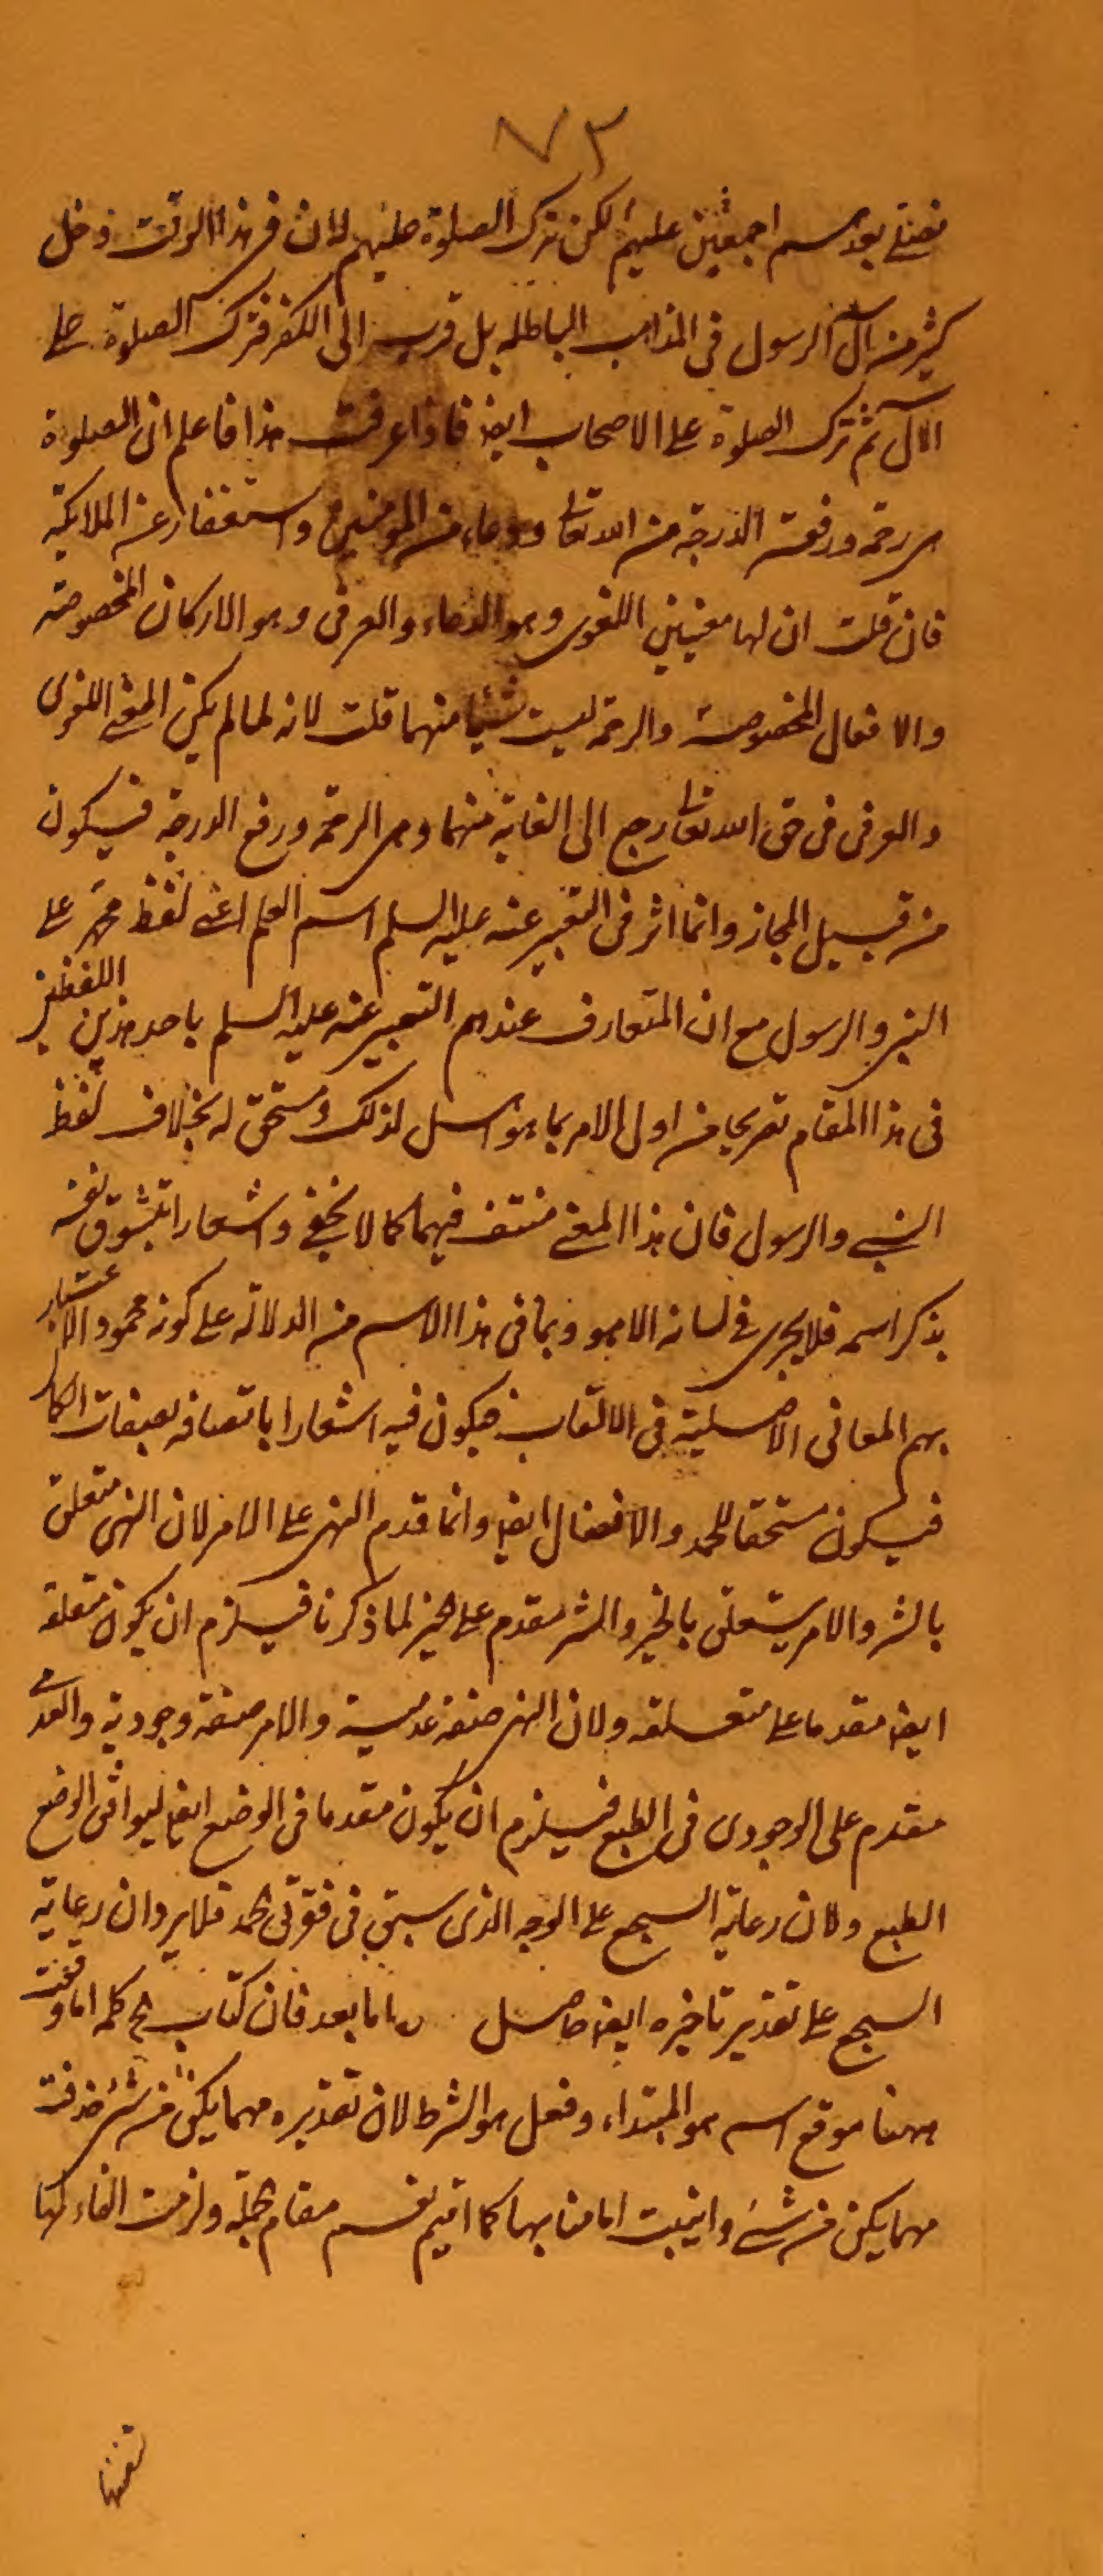 ٧٣
فصلى بعدهم اجمعين عليهم لكن ترك الصلوة عليهم لان فى هذا الوقت دخل
كثير من آل الرسول فى المذاهب الباطله بل قرب الى الكفر فترك الصلوة على
الآل ثم ترك الصلوة على الاصحاب ايضا فاذا عرفت هذا فاعلم ان الصلوة
هى رحمة ورفعة الدرجة من الله تعالى ودعاء من المؤمنين واستغفار عن الملائكة
فان قلت ان لها معنيين اللغوى وهو الدعاء والعرفى وهو الاركان المخصوصة
والافعال المخصوصة والرحمة ليست شيئا منهما قلت لانه لما لم يكن المعنى اللغوى
والعرفى فى حق الله تعالى رجع الى الغاية منهما وهى الرحمة ورفع الدرجة فيكون
من قبيل المجاز وانما اثر فى التعبير عنه عليه السلم اسم العلم اعنى لفظ محمد على
النبى والرسول مع ان المتعارف عندهم التعبير عنه عليه السلم باحد هذين اللفظين
فى هذا المقام تصريحا من اول الامر بما هو اهل لذلك ومستحق له بخلاف لفظ
النبى والرسول فان هذا المعنى منتف فيهما كما لا يخفى واشعارا بتشوق نفسه
بذكر اسمه فلا يجرى فى لسانه الا هو وبما فى هذا الاسم من الدلالة على كونه محمودا لاعتبار
بهم المعانى الاصلية فى الالقاب فيكون فيه اشعارا باتصافه بصفات الكمال
فيكون مستحقا للحمد والافضال ايضا وانما قدم النهى على الامر لان النهى متعلق
بالشر والامر يتعلق بالخير والشر مقدم على الخير لما ذكرنا فيلزم ان يكون متعلقه
ايضا مقدما على متعلقه ولان النهى صفة عدمية والامر صفة وجودية والعدمى
مقدم على الوجودى فى الطبع فيلزم ان يكون مقدما فى الوضع ايضا ليوافق الوضع
الطبع ولان رعاية السجع على الوجه الذى سبق فى فقرتى الحمد فلا يرد ان رعاية
السجع على تقدير تاخيره ايضا حاصل اما بعد فان كتاب كلمة اما وقعت
ههنا موقع اسم هو المبتداء وفعل هو الشرط لان تقديره مهما يكن من شئ حذفت
مهما يكن من شئ وانيبت اما منابها كما اقيم نعم مقام الجملة ولزمت الفاء لها